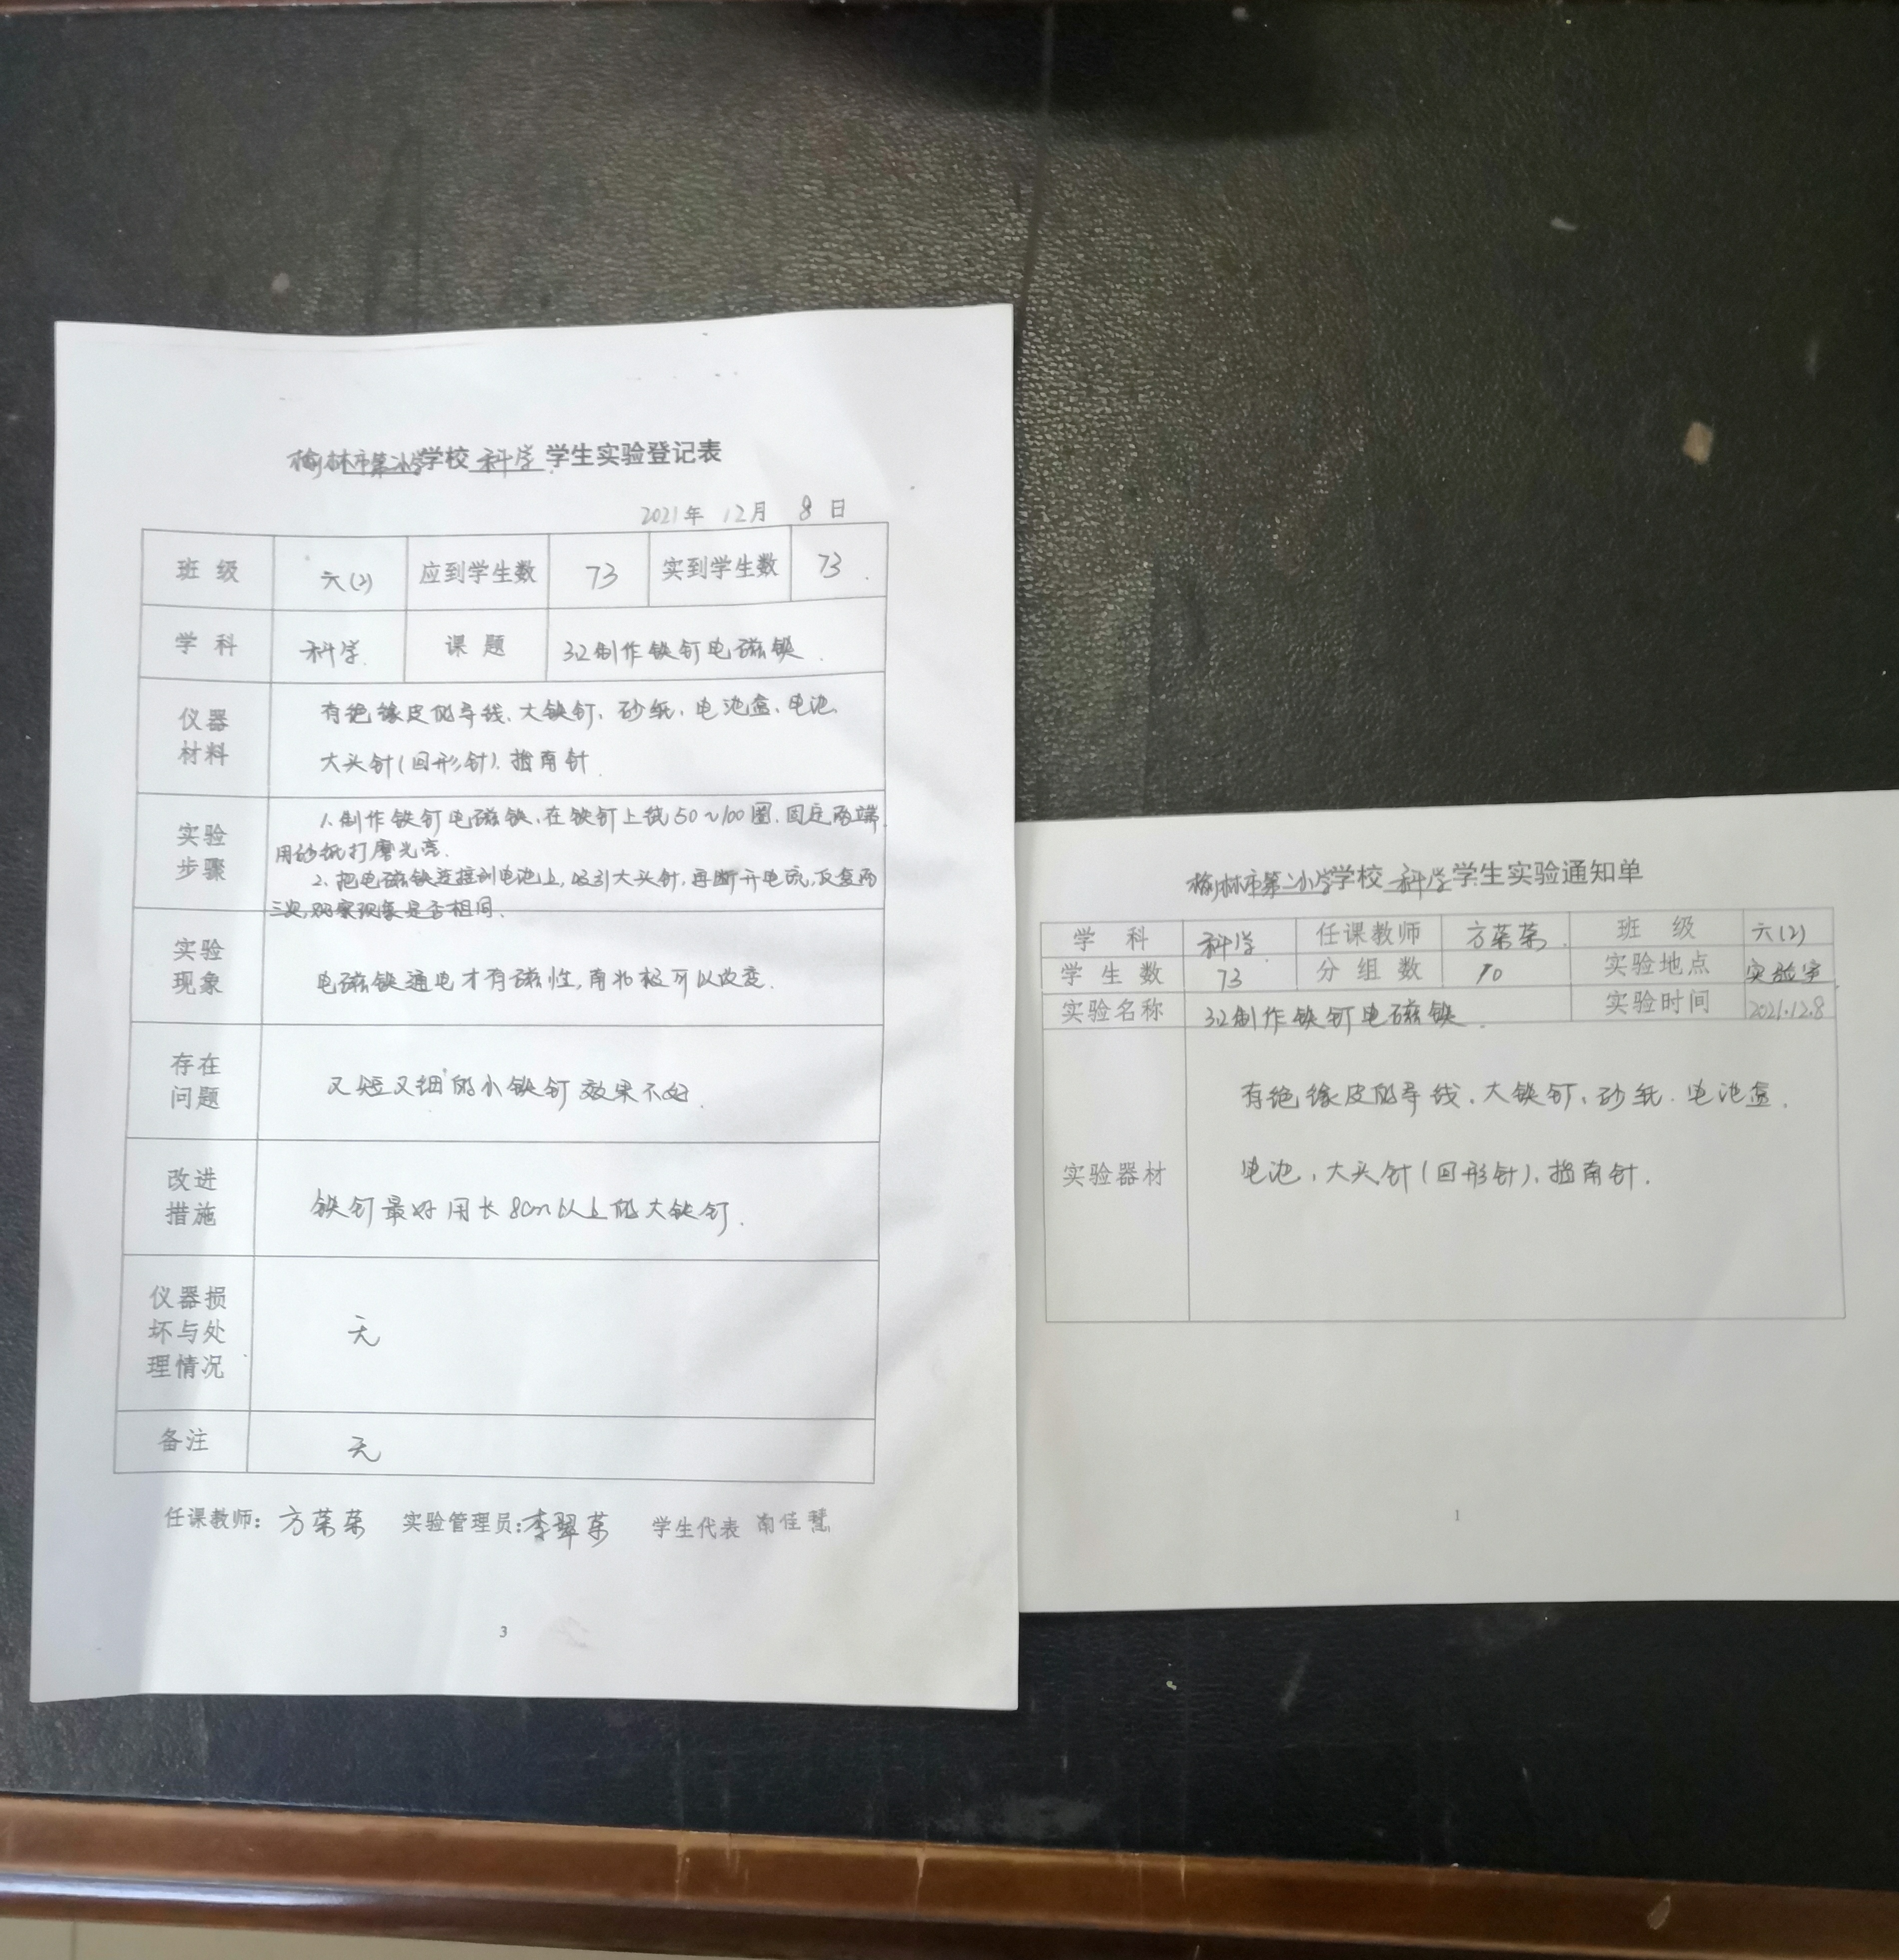 榆林市第二小学学校 科学 学生实验登记表
2021年 12月 8日
班级 六(2) 应到学生数 73 实到学生数 73
学科 科学 课题 3.2制作铁钉电磁铁
仪器材料 有绝缘皮的导线、大铁钉、砂纸、电池盒、电池、
大头针(回形针)、指南针
实验步骤 1、制作铁钉电磁铁、在铁钉上绕50~100圈、固定两端,
用砂纸打磨光亮.
2、把电磁铁连接到电池上,吸引大头针,再断开电流,反复两
三次,观察现象是否相同.
实验现象 电磁铁通电才有磁性,南北极可以改变.
存在问题 又短又细的小铁钉效果不好.
改进措施 铁钉最好用长8cm以上的大铁钉.
仪器损坏与处理情况 无
备注 无
任课教师: 方荣荣 实验管理员: 李翠 学生代表 南佳慧
3
榆林市第二小学学校 科学 学生实验通知单
学科 科学 任课教师 方荣荣 班级 六(2)
学生数 73 分组数 10 实验地点 实验室
实验名称 3.2制作铁钉电磁铁. 实验时间 2021.12.8
实验器材 有绝缘皮的导线、大铁钉、砂纸、电池盒、
电池、大头针(回形针)、指南针.
1